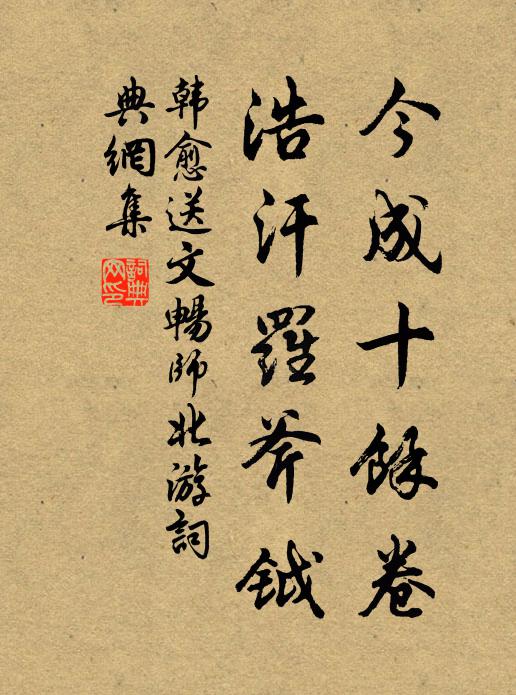 今成十餘卷
浩汗羅斧鉞
韓愈送文暢師北游詞
典網集
詞典
网印